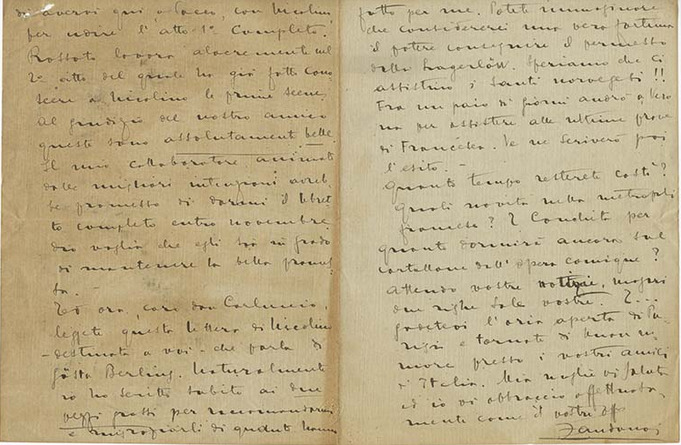 di avervi qui a Sacco, con Nicolino
per udire l'atto 1° completo.
Rossato lavora alacremente sul
2° atto del quale ha già fatto cono
scere a Nicolino le prime scene.
Al giudizio del nostro amico
queste sono assolutamente belle.
Il mio collaboratore animato
dalle migliori intenzioni avreb
be promesso di darmi il libret
to completo entro novembre.
Dio voglia che egli sia in grado
di mantenere la bella promes
sa.
Ed ora, caro don Carluccio,
leggete questa lettera di Nicolino
- destinata a voi - che parla di
Gösta Berling. Naturalmente
io ho scritto subito ai due
pezzi grossi per raccomandarmi
e ringraziarli di quanto hanno
fatto per me. Potete immaginare
che considererei una vera fortuna
il potere conseguire il permesso
della Lagerlöff. Speriamo che ci
assistino i Santi norvegesi!!
Fra un paio di giorni andrò a Pesa
ro per assistere alle ultime prove
di Francesca. Ve ne scriverò poi
l'esito. -
Quanto tempo resterete costì?
Quali novità nella metropoli
francese? E Conchita per
quanto dormirà ancora sul
cartellone dell'Opera comique?
Attendo vostre notizie, magari
due righe sole vostre. E...
godetevi l'aria aperta di Pa
rigi e tornate di buon u
more presso i vostri amici
d'Italia. Mia moglie vi saluta
ed io vi abbraccio affettuosa
mente come il vostro aff
Zandonai